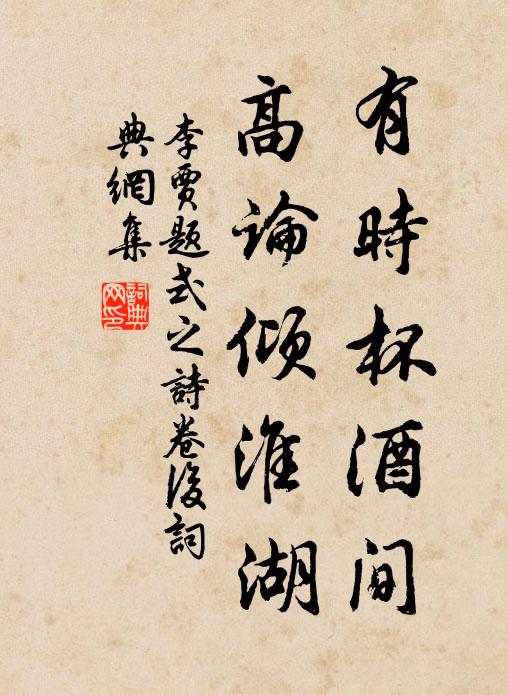 有時杯酒間
高論傾淮湖
李賈題式之詩卷後詞
典網集
詞典網印